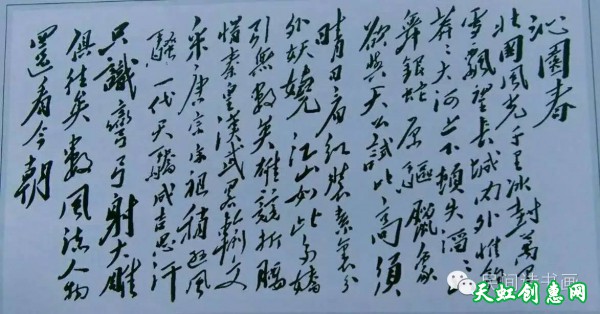 沁園春
北國風光千里冰封萬里
雪飄望長城内外惟餘
莽々大河上下頓失滔々
舞銀蛇原驅臘象
欲與天公試比高須
晴日看紅裝素裹分
外妖嬈江山如此多嬌
引無數英雄競折腰
惜秦皇漢武畧輸文
采唐宗宋祖稍遜風
騷一代天驕成吉思汗
只識彎弓射大雕
俱往矣數風流人物
還看今朝
天虹创惠网